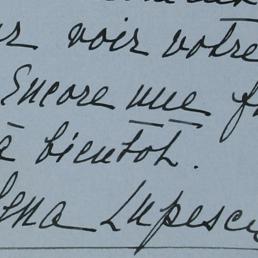 ur voir votre
Encore une f
à bientot.
Lena Lupescu